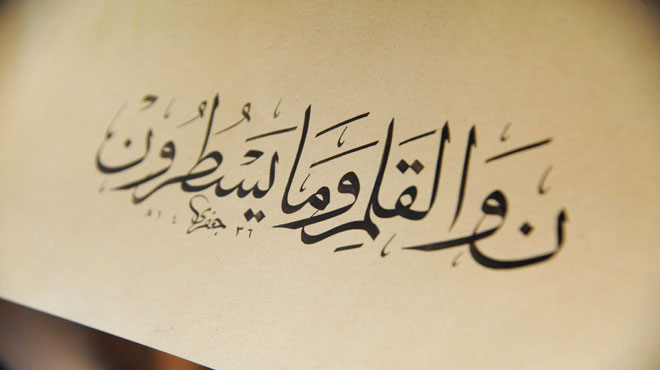 ن وَالْقَلَمِ وَمَا يَسْطُرُونْ